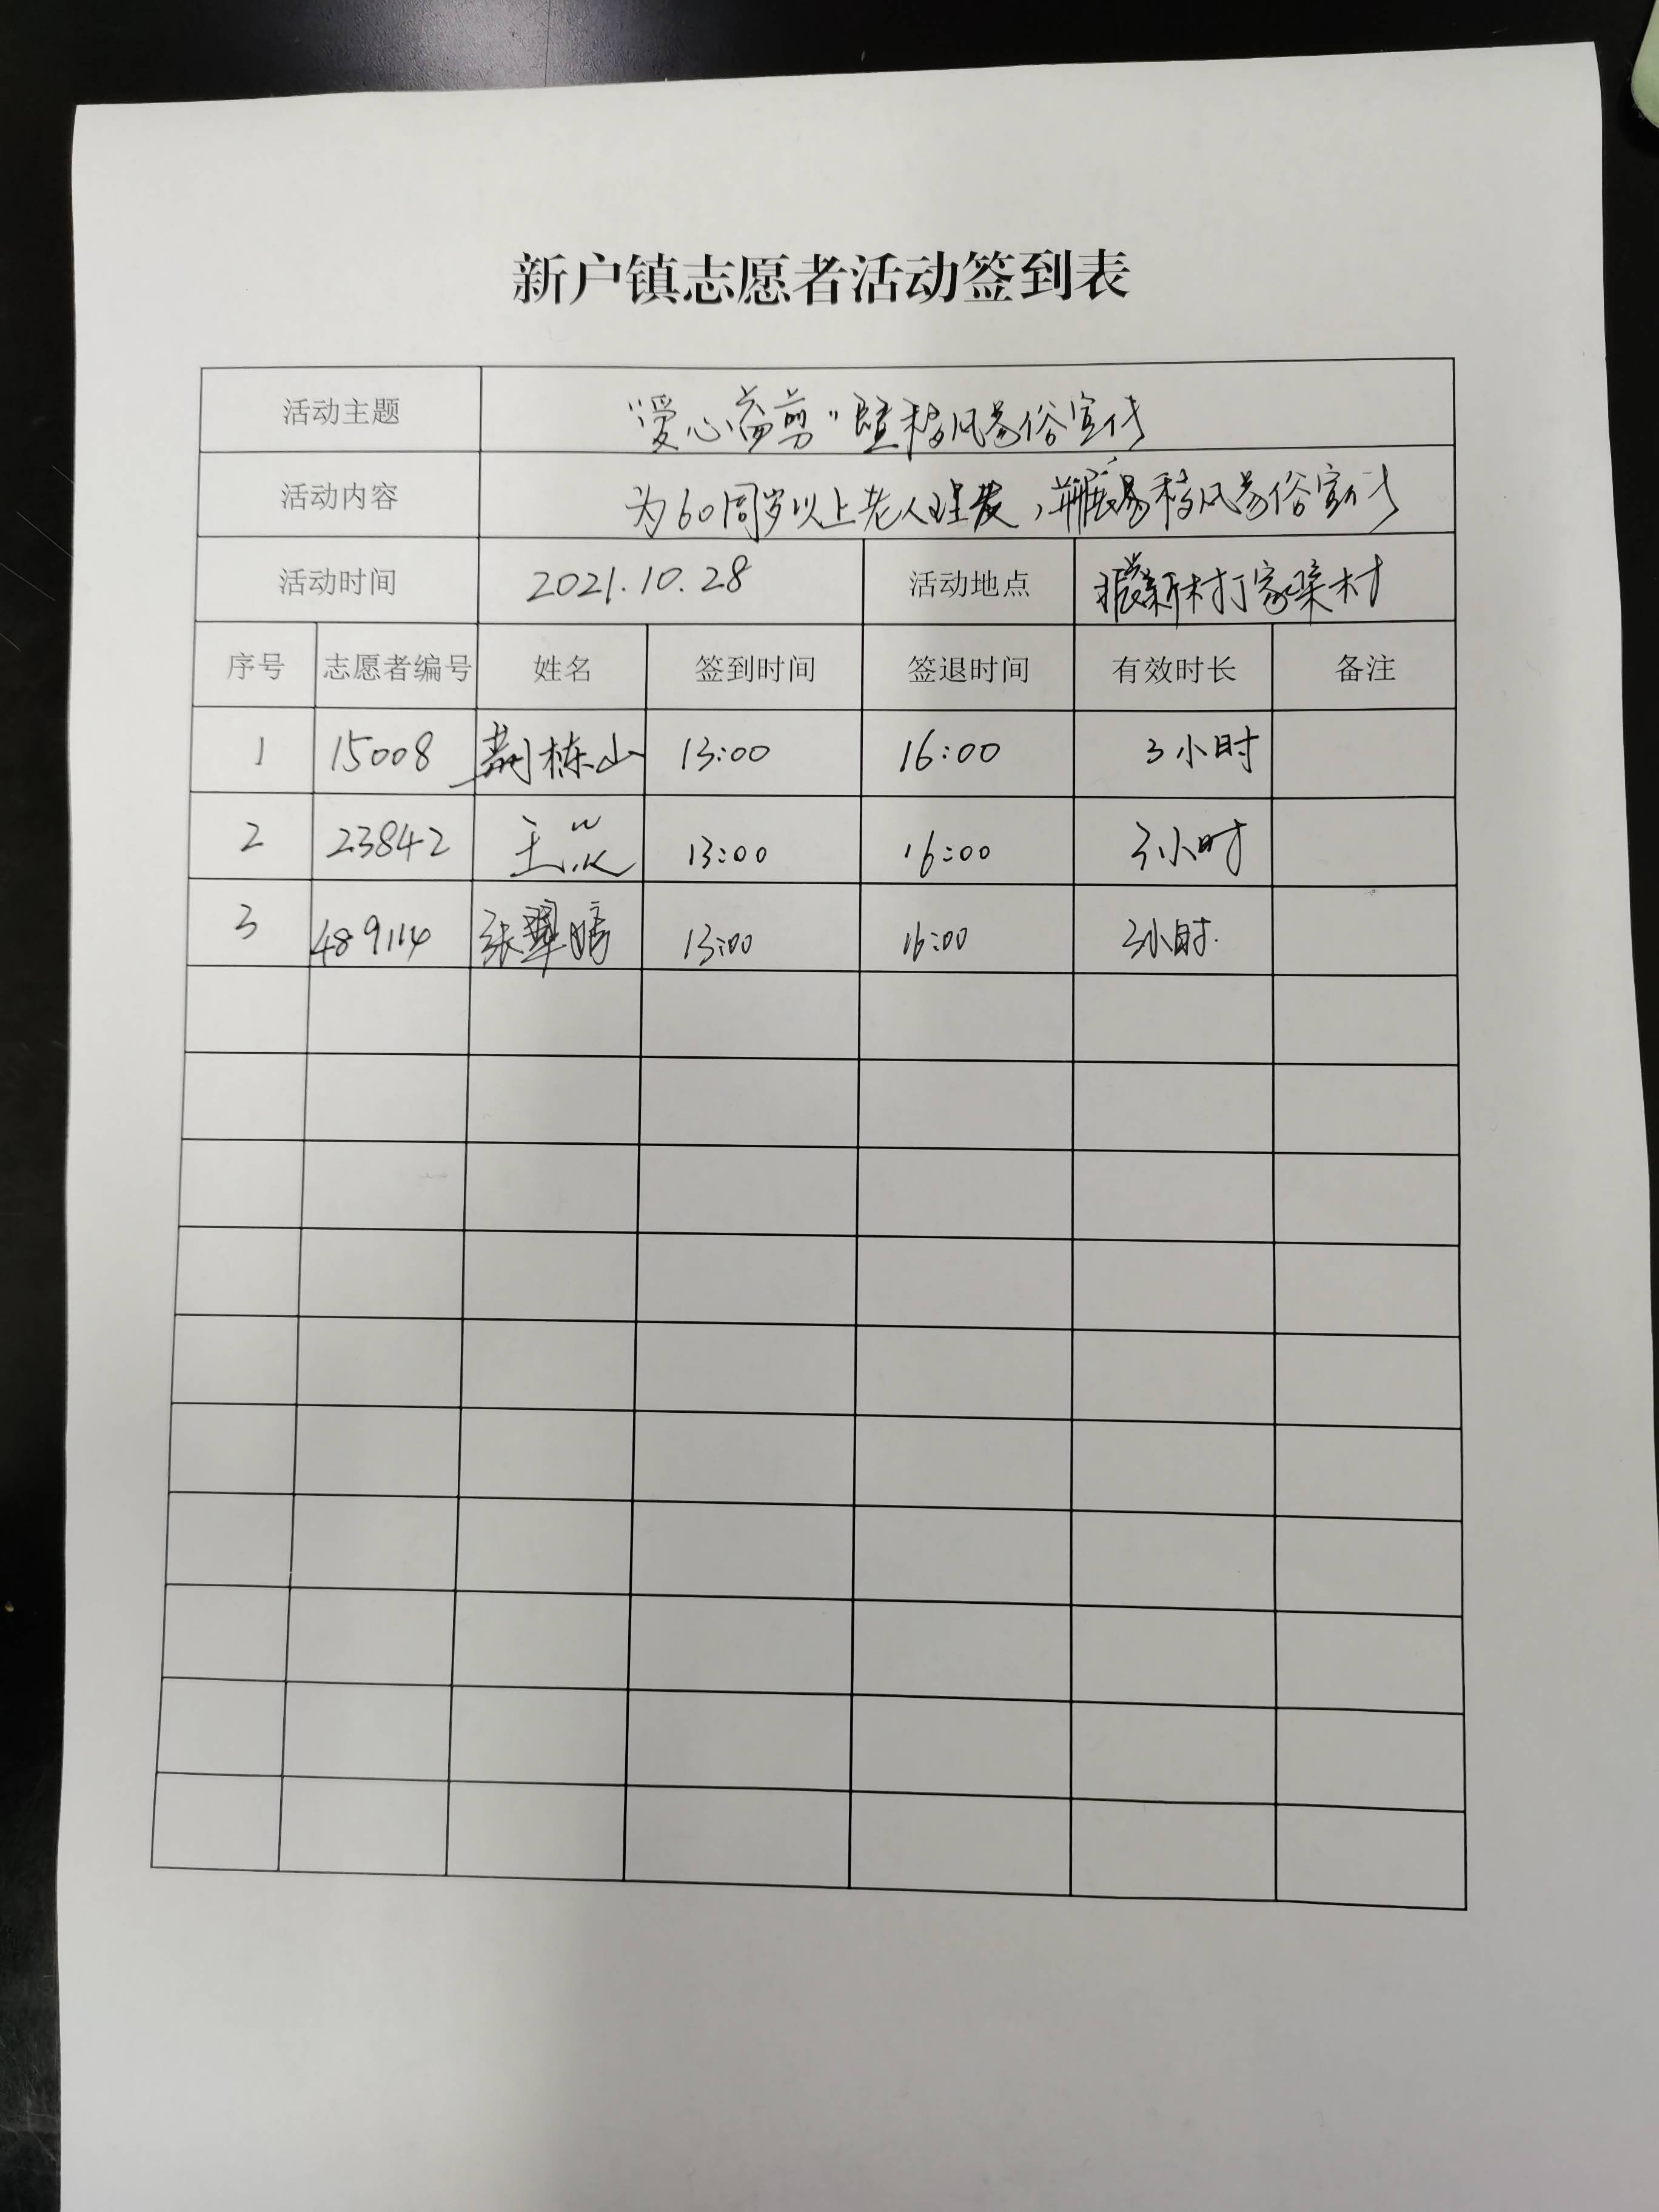 新户镇志愿者活动签到表
活动主题 “爱心益剪”暨移风易俗宣传
活动内容 为60周岁以上老人理发，并开展移风易俗宣传
活动时间 2021.10.28 活动地点 新村丁家梁村
序号 志愿者编号 姓名 签到时间 签退时间 有效时长 备注
1 15008 荆栋山 13:00 16:00 3小时
2 23842 王 13:00 16:00 3小时
3 489114 张翠婧 13:00 16:00 3小时.